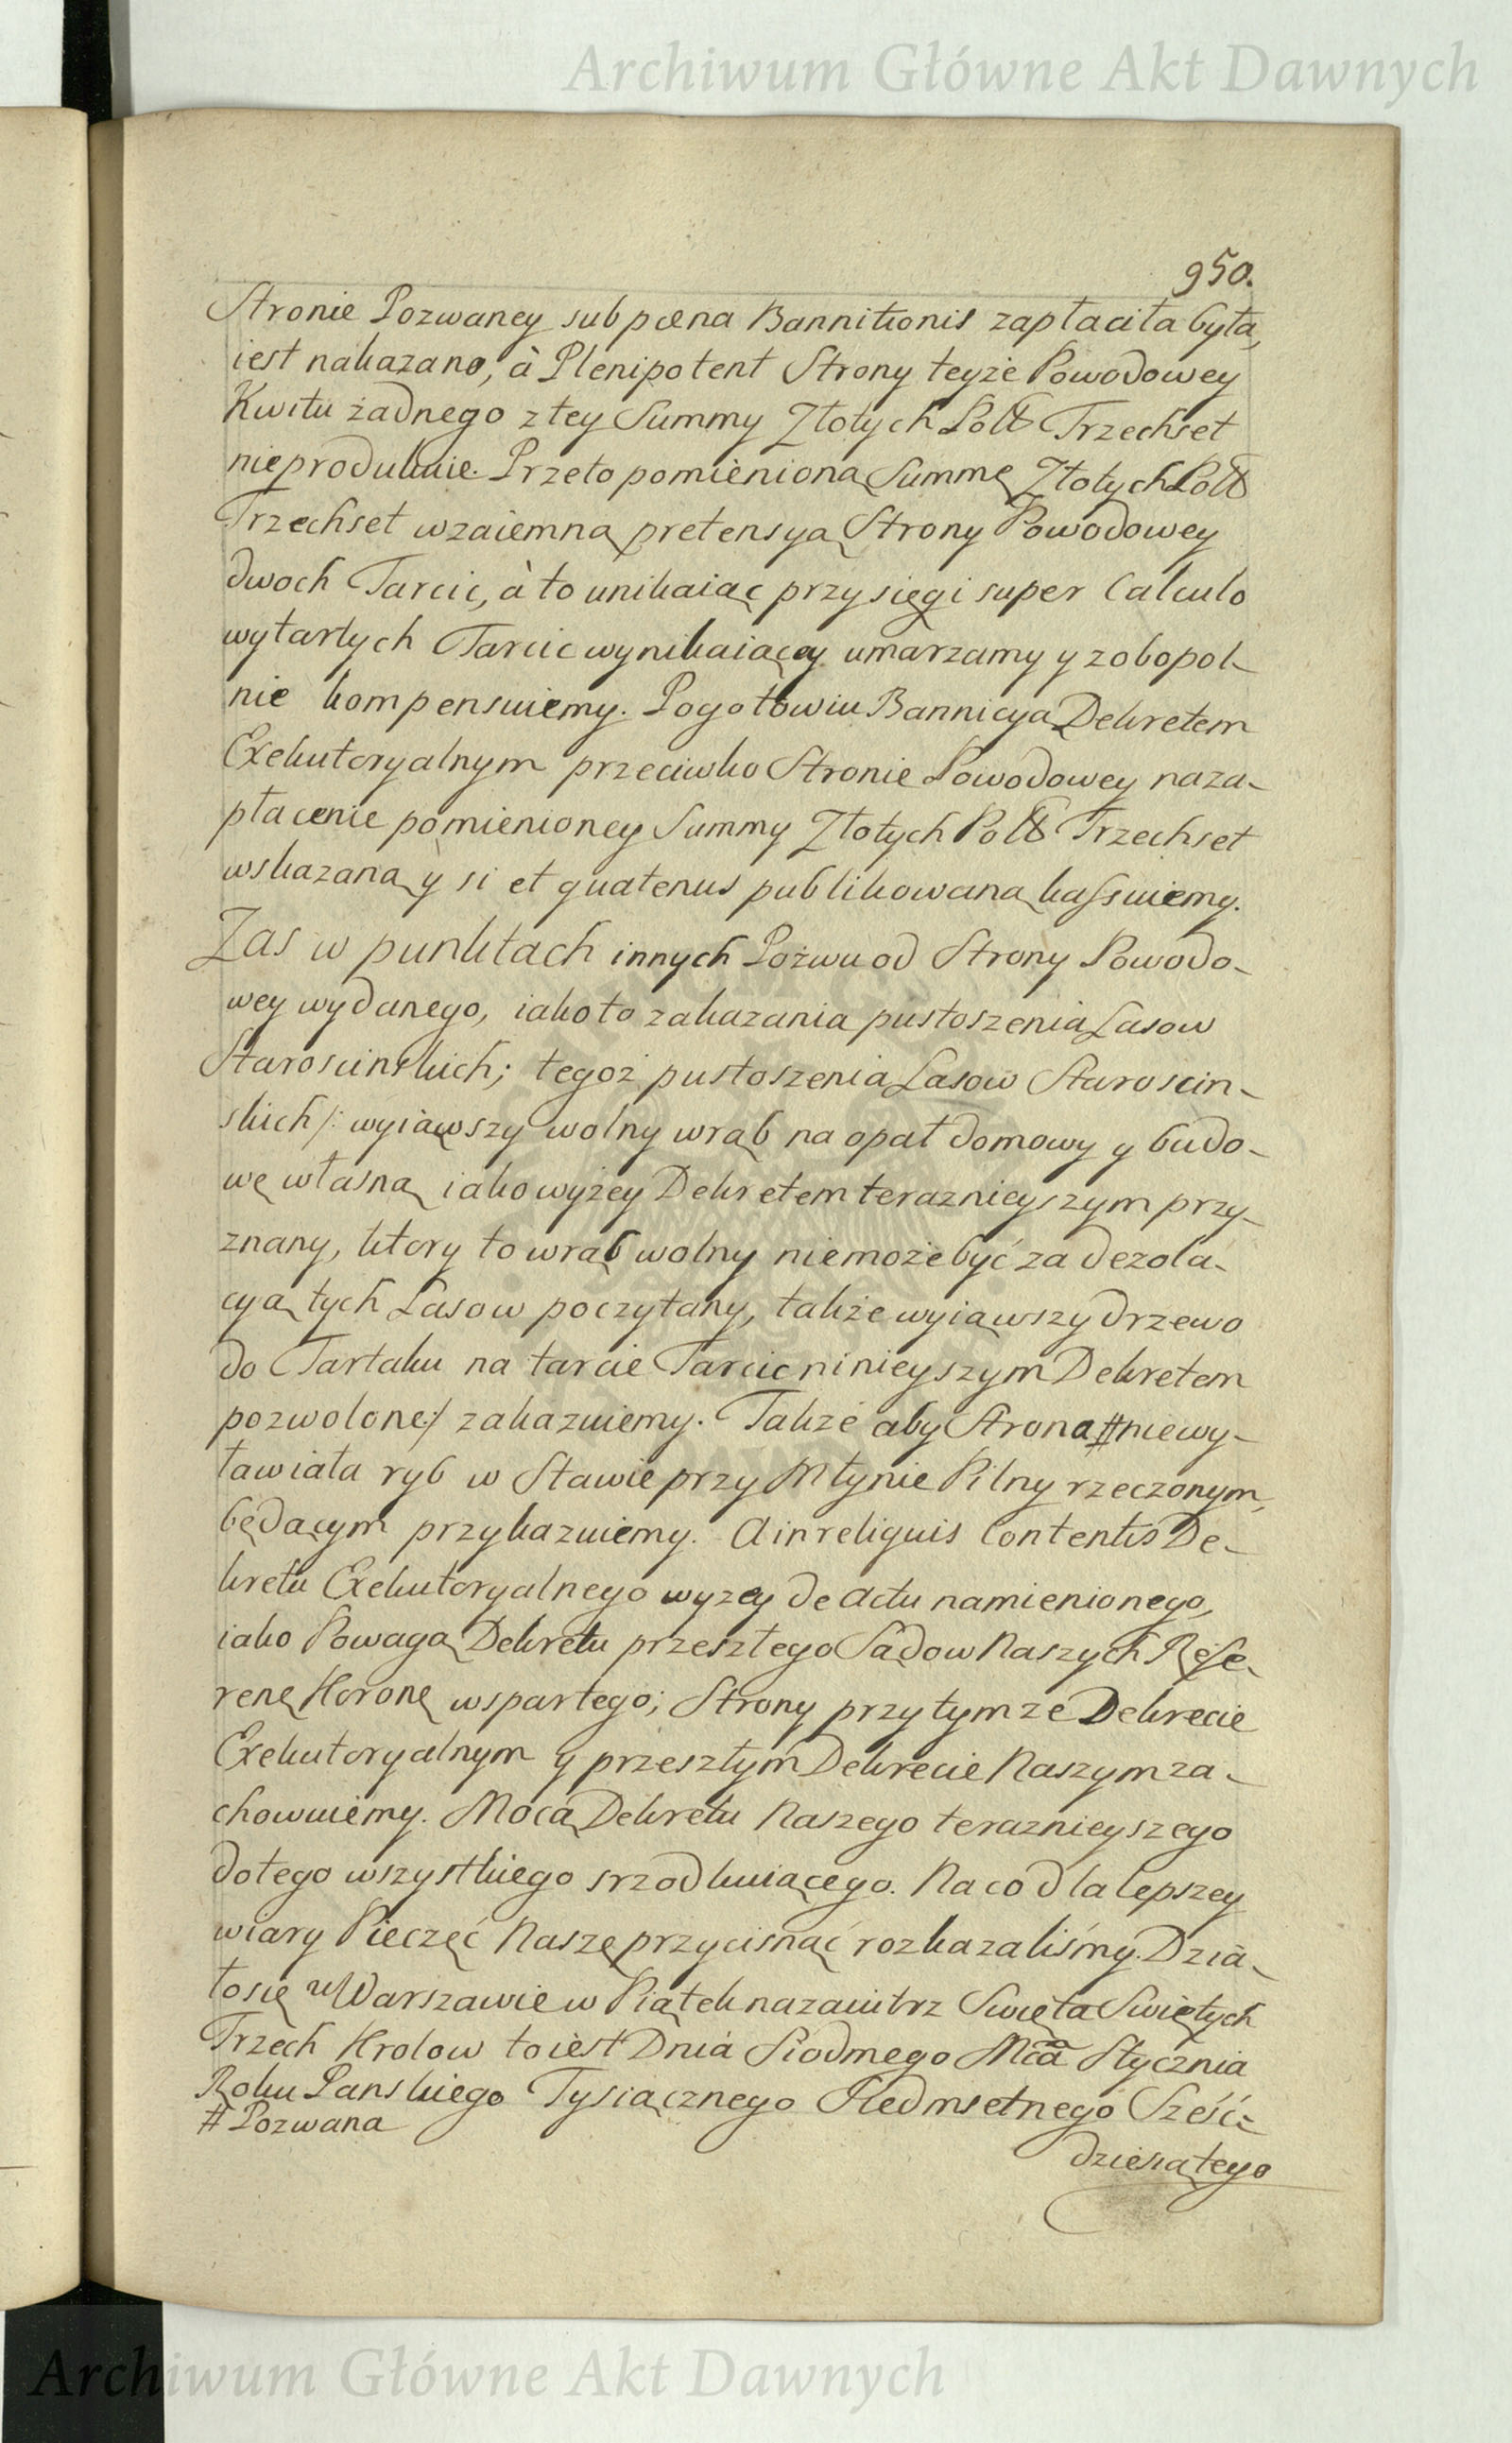 Archiwum Główne Akt Dawnych
950.
Stronie Pozwaney sub pœna Bannitionis zapłaciła była,
iest nakazano, à Plenipotent Strony teyże Powodowey
Kwitu żadnego z tey Summy Złotych Polł Trzechset
nieprodukuie. Przeto pomienioną Summę Złotych Polł
Trzechset wzaiemną pretensyą Strony Powodowey
dwoch Tarcic, à to unikaiąc przysięgi super Calculo
wytartych Tarcic wynikaiącey umarzamy y zobopol-
nie kompensuiemy. Pogotowiu Bannicyą Dekretem
Exekutoryalnym przeciwko Stronie Powodowey na za-
płacenie pomienioney Summy Złotych Polł Trzechset
wskazaną y si et quatenus publikowaną kassuiemy.
Zas w punktach innych Pozwu od Strony Powodo-
wey wydanego, iako to zakazania pustoszenia Lasow
Staroscinskich; tegoż pustoszenia Lasow Staroscin-
skich /: wyiąwszy wolny wrąb na opał domowy y budo-
wę własną iako wyżey Dekretem teraznieyszym przy-
znany, ktory to wrąb wolny niemoże być za dezola-
cyą tych Lasow poczytany, także wyiąwszy drzewo
do Tartaku na tarcie Tarcic ninieyszym Dekretem
pozwolone:/ zakazuiemy. Także aby Strona # niewy-
ławiała ryb w Stawie przy Młynie Pilny rzeczonym,
będącym przykazuiemy. A in reliquis Contentis De-
kretu Exekutoryalnego wyzey de Actu namienionego,
iako Powagą Dekretu przeszłego Sądow Naszych Refe-
renę Koronę wspartego; Strony przy tymże Dekrecie
Exekutoryalnym y przeszłym Dekrecie Naszym za-
chowuiemy. Mocą Dekretu Naszego teraznieyszego
do tego wszystkiego srzodkuiącego. Na co dla lepszey
wiary Pieczęć Naszę przycisnąć rozkazaliśmy. Dzia-
ło się w Warszawie w Piątek nazaiutrz Swięta Swiętych
Trzech Krolow to iest Dnia Siodmego Mca Stycznia
Roku Panskiego Tysiącznego Siedmsetnego Sześć-
# Pozwana
dziesiątego
Archiwum Główne Akt Dawnych